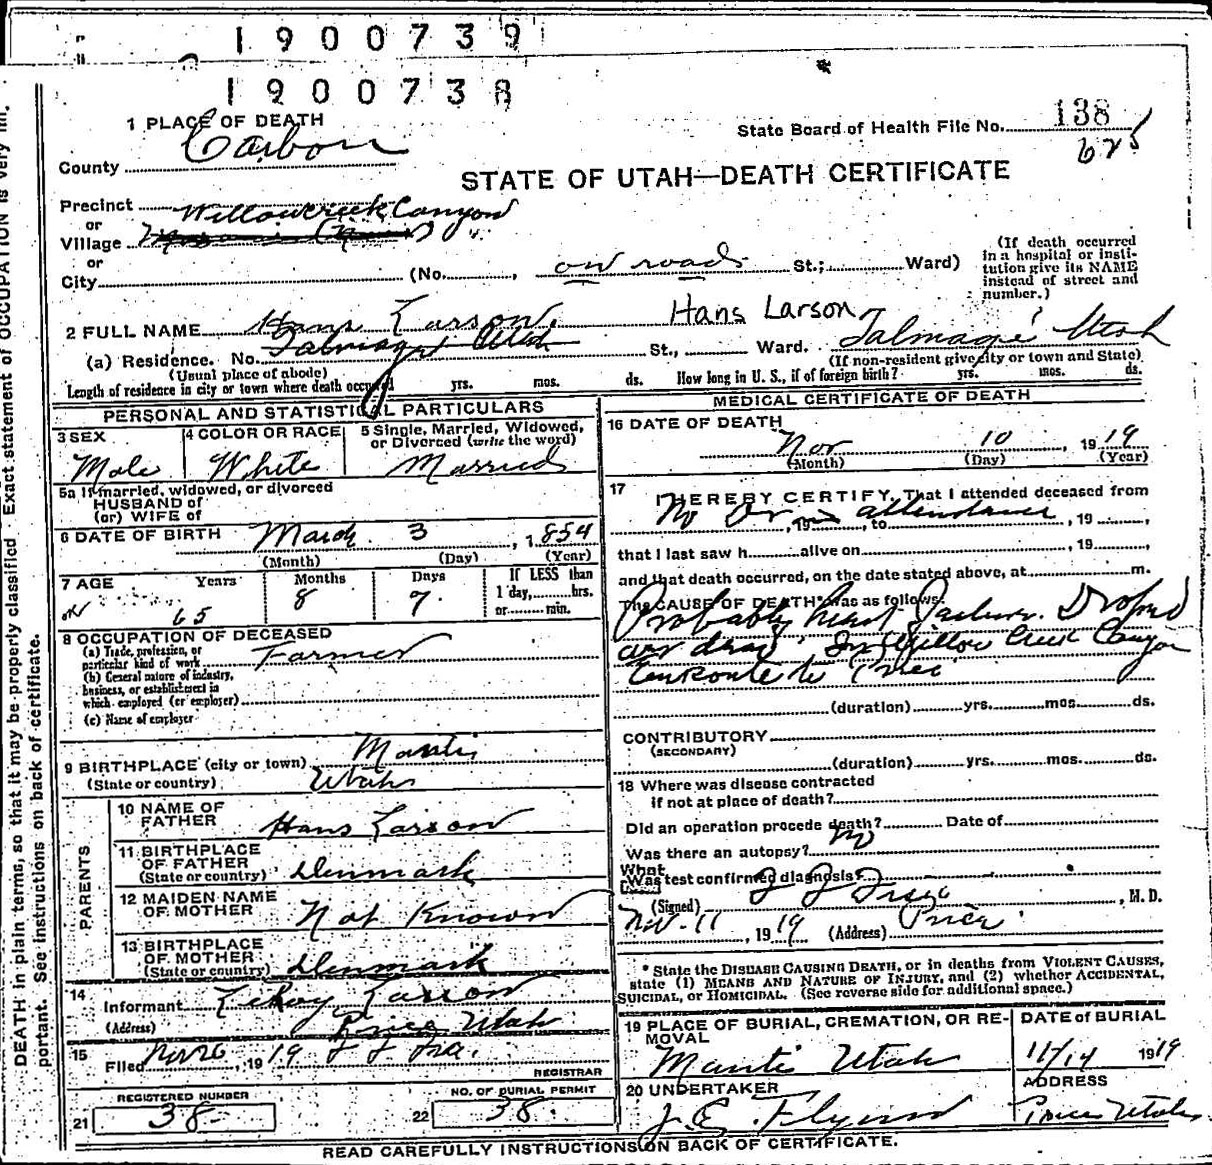 1900739
1900738
1 PLACE OF DEATH
State Board of Health File No. 138
County Carbon
625
STATE OF UTAH—DEATH CERTIFICATE
Precinct Willowcreek Canyon
or
Village
or
City (No. , on road St.; Ward)
(If death occurred in a hospital or institution give its NAME instead of street and number.)
2 FULL NAME Hans Larson Hans Larson
(a) Residence. No. Talmage Utah St., Ward. Talmage Utah
(Usual place of abode) (If non-resident give city or town and State)
Length of residence in city or town where death occurred yrs. mos. ds. How long in U. S., if of foreign birth? yrs. mos. ds.
PERSONAL AND STATISTICAL PARTICULARS
3 SEX Male
4 COLOR OR RACE White
5 Single, Married, Widowed, or Divorced (write the word) Married
5a If married, widowed, or divorced
HUSBAND of
(or) WIFE of
6 DATE OF BIRTH March 3, 1854
(Month) (Day) (Year)
7 AGE Years Months Days If LESS than
65 8 7 1 day, hrs.
or min.
8 OCCUPATION OF DECEASED
(a) Trade, profession, or
particular kind of work Farmer
(b) General nature of industry,
business, or establishment in
which employed (or employer)
(c) Name of employer
9 BIRTHPLACE (city or town) Manti
(State or country) Utah
PARENTS
10 NAME OF
FATHER Hans Larson
11 BIRTHPLACE
OF FATHER
(State or country) Denmark
12 MAIDEN NAME
OF MOTHER Not Known
13 BIRTHPLACE
OF MOTHER
(State or country) Denmark
14 Informant LeRoy Larson
(Address) Price Utah
15 Filed , 1919
REGISTRAR
REGISTERED NUMBER
21 38
NO. OF BURIAL PERMIT
22 38
MEDICAL CERTIFICATE OF DEATH
16 DATE OF DEATH
Nov 10, 1919
(Month) (Day) (Year)
17 I HEREBY CERTIFY, That I attended deceased from
No Dr in attendance, 19 , to , 19 ,
that I last saw h alive on , 19 ,
and that death occurred, on the date stated above, at m.
The CAUSE OF DEATH* was as follows:
Probably heart Failure. Droped
dead In Willow Creek Canyon
EnRoute to Price
(duration) yrs. mos. ds.
CONTRIBUTORY
(SECONDARY)
(duration) yrs. mos. ds.
18 Where was disease contracted
if not at place of death?
Did an operation precede death? Date of
Was there an autopsy? no
What test confirmed diagnosis?
(Signed) , M. D.
Nov. 11, 1919 (Address) Price
* State the DISEASE CAUSING DEATH, or in deaths from VIOLENT CAUSES,
state (1) MEANS AND NATURE OF INJURY, and (2) whether ACCIDENTAL,
SUICIDAL, or HOMICIDAL. (See reverse side for additional space.)
19 PLACE OF BURIAL, CREMATION, OR REMOVAL
Manti Utah
DATE of BURIAL
11/14 1919
20 UNDERTAKER
J. E. Flynn
ADDRESS
Price Utah
READ CAREFULLY INSTRUCTIONS ON BACK OF CERTIFICATE.
DEATH in plain terms, so that it may be properly classified. Exact statement of OCCUPATION is very im-
portant. See instructions on back of certificate.